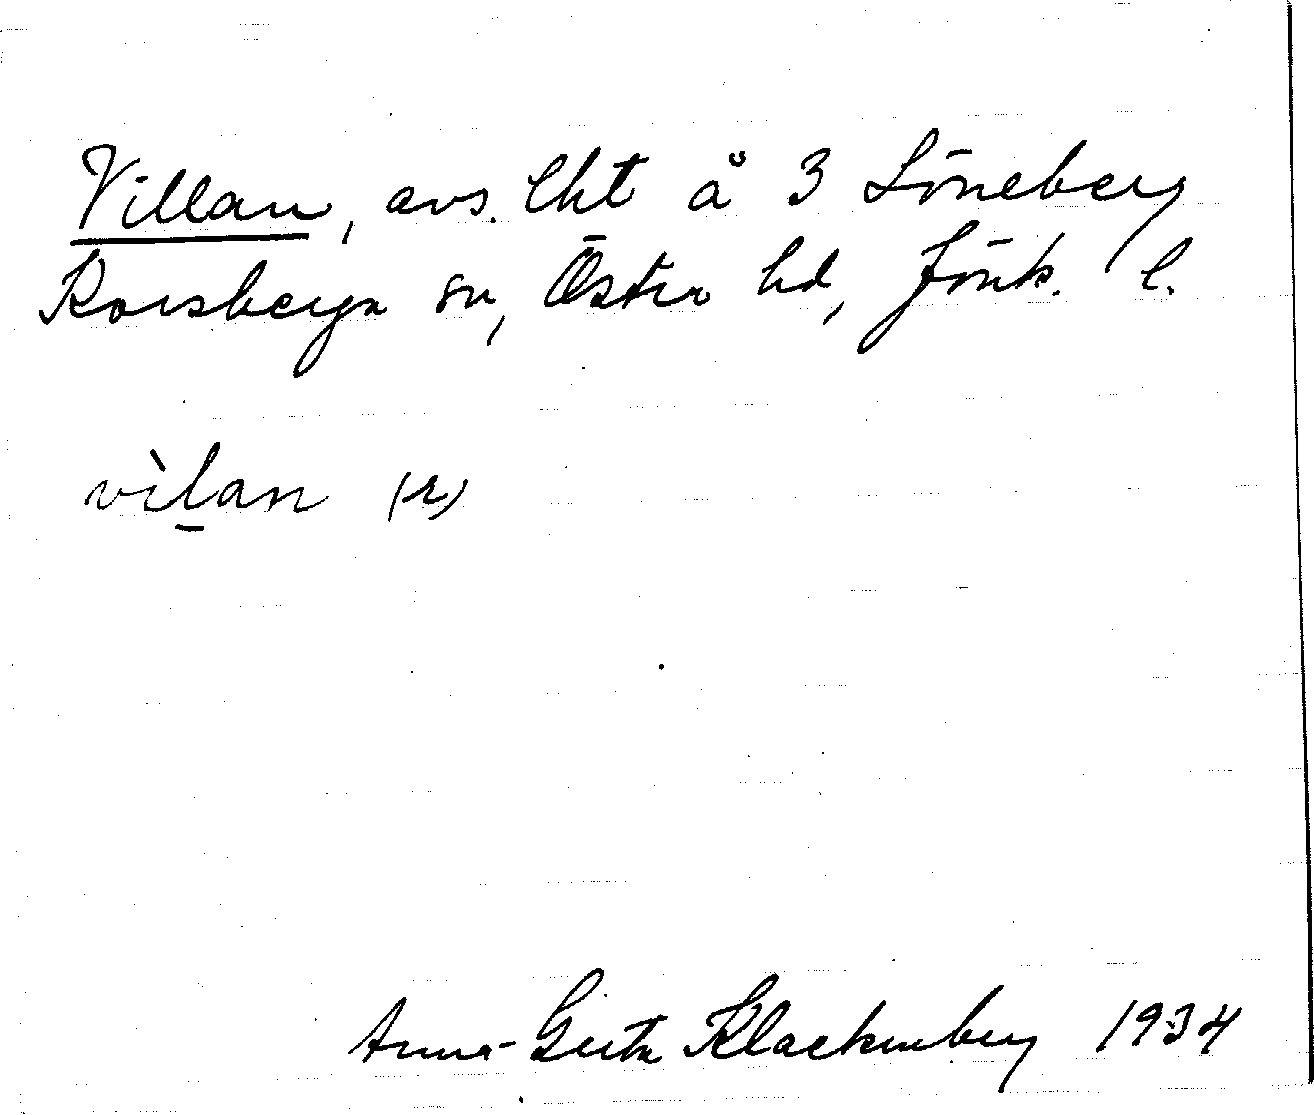 Villan, avs. lht å 3 Löneberg
Korsberga sn, Östra hd, Jönk. l.
vìlan (r)
Anna-Greta Klackenberg 1934